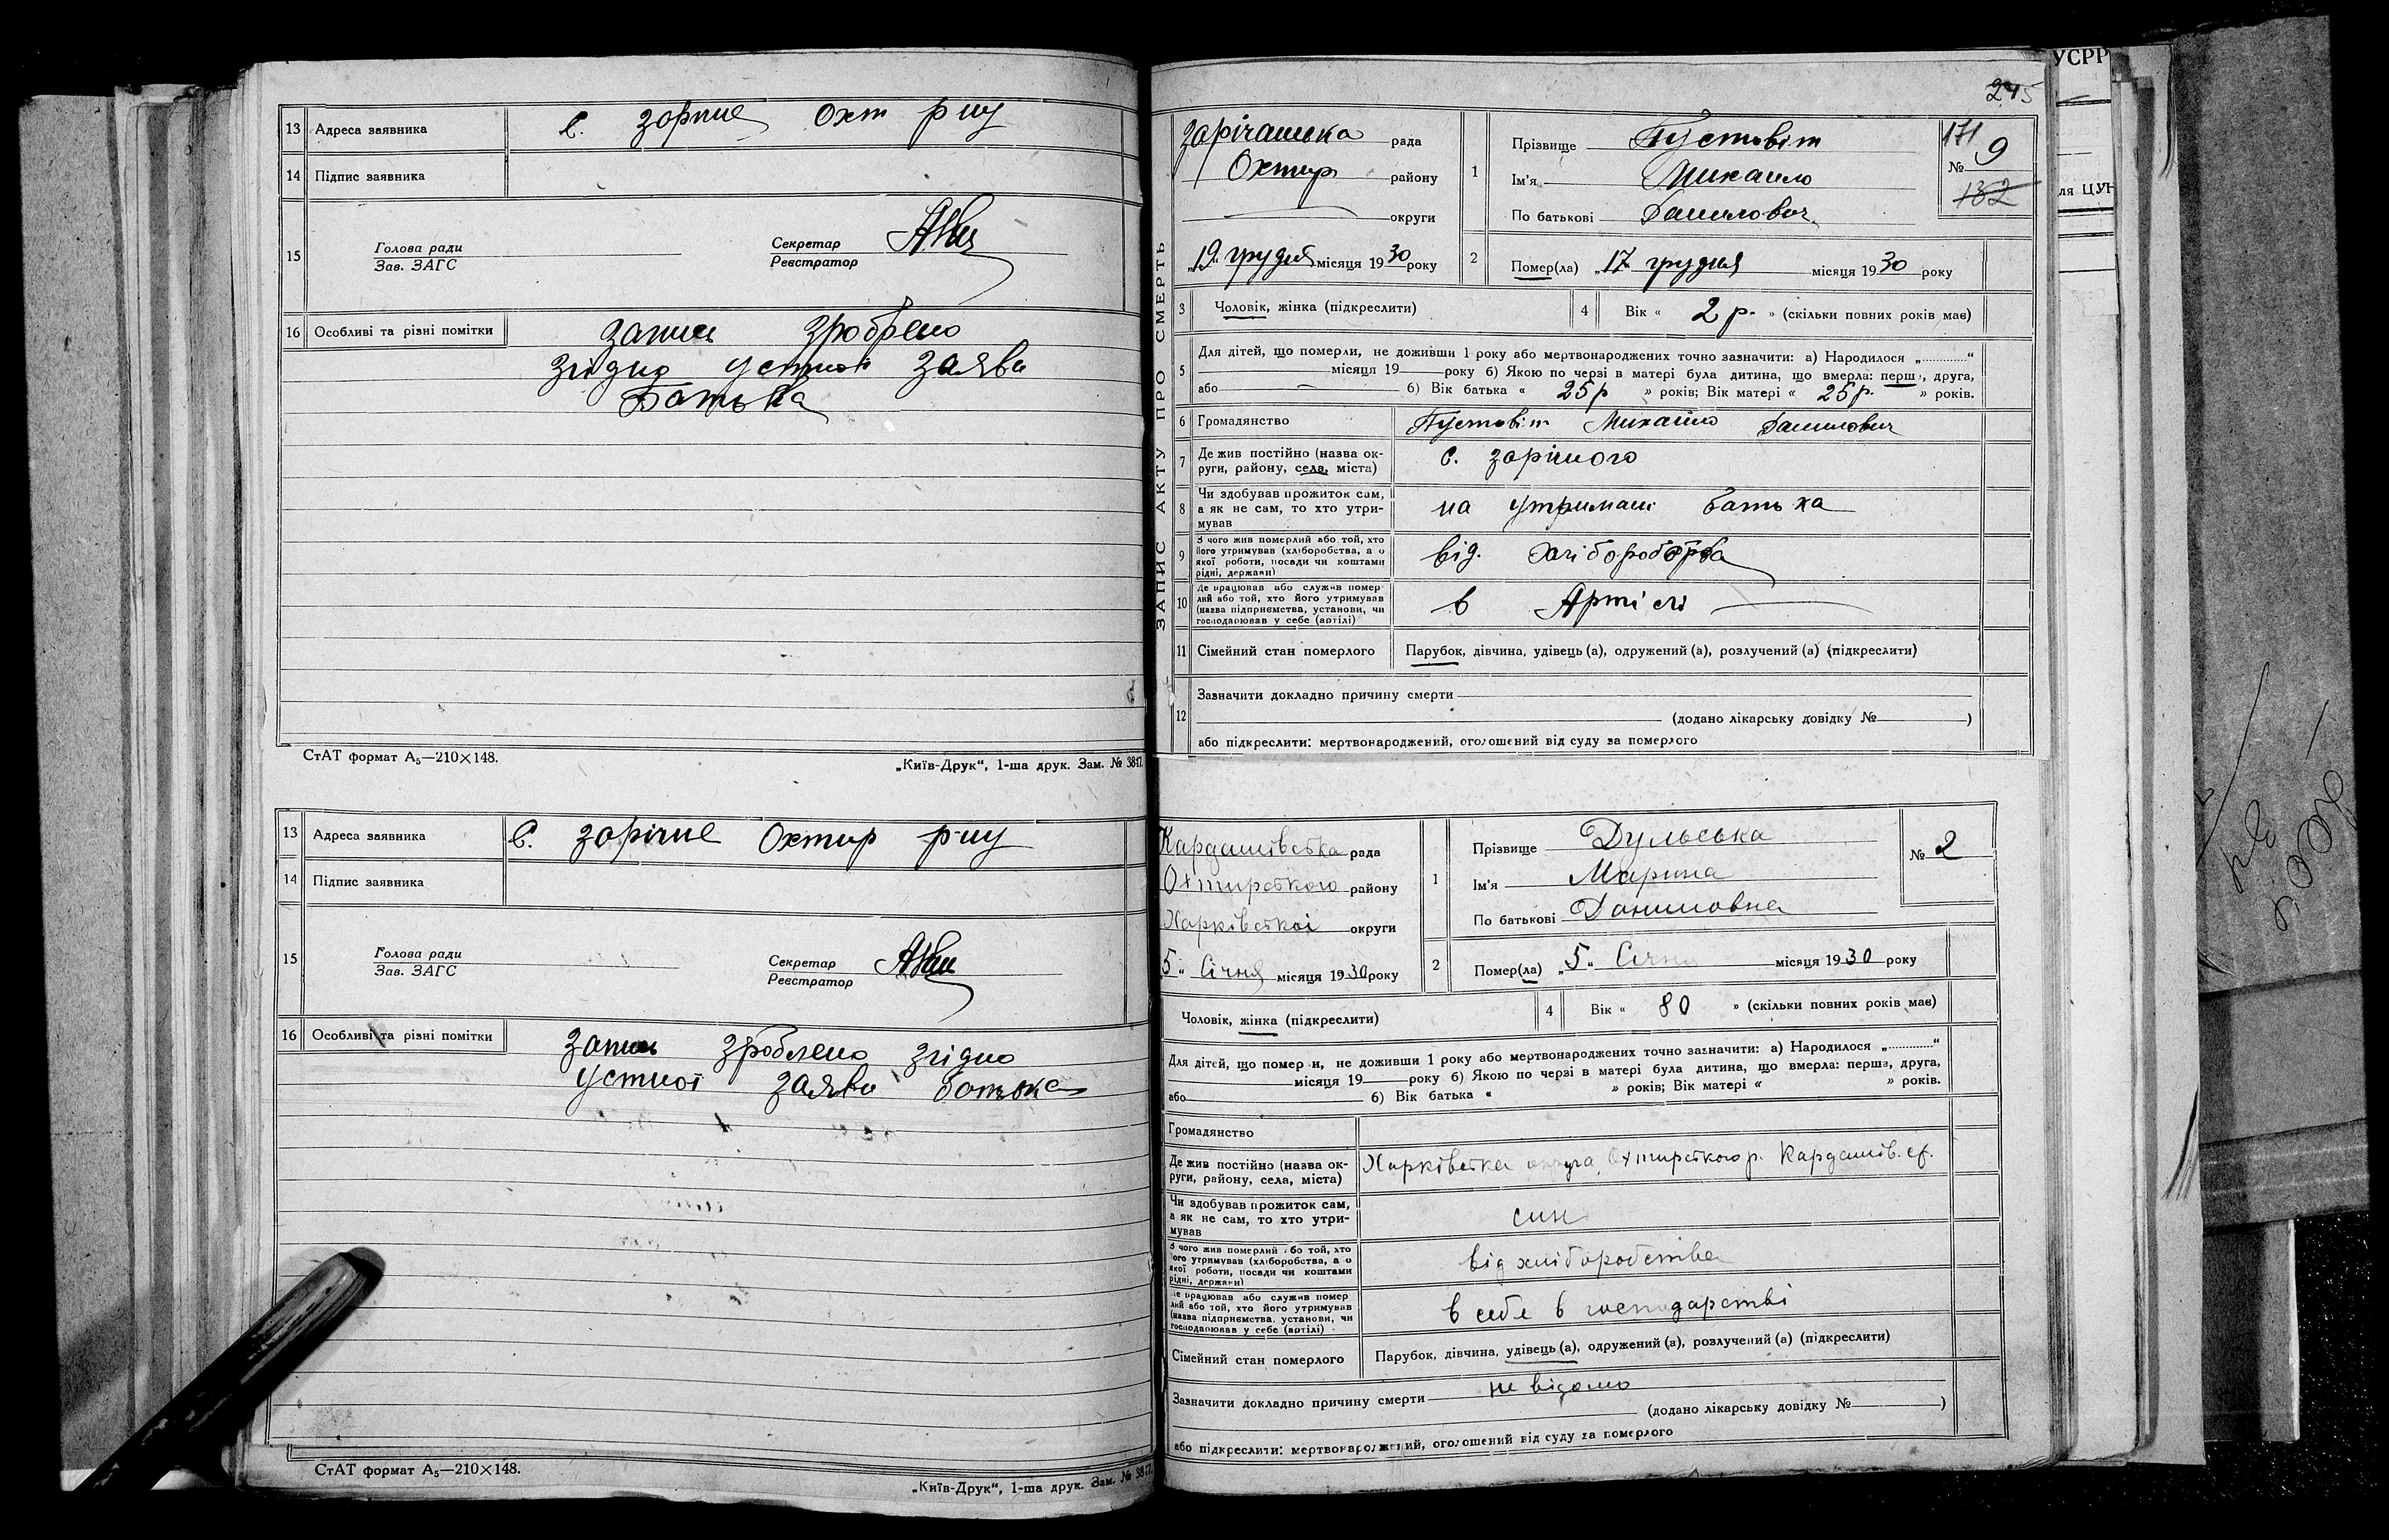 13 Адреса заявника с. зарічне Охт р-ну
14 Підпис заявника
15 Голова ради
Зав. ЗАГС
Секретар
Реєстратор
16 Особливі та різні помітки запис зроблено
згідно устної заяви
Батька
СтАТ формат А₅—210×148.
„Київ-Друк“, 1-ша друк. Зам. № 3817.
13 Адреса заявника С. зарічне Охтир р-ну
14 Підпис заявника
15 Голова ради
Зав. ЗАГС
Секретар
Реєстратор
16 Особливі та різні помітки запис зроблено згідно
устної заяви батька
СтАТ формат А₅—210×148.
„Київ-Друк“, 1-ша друк. Зам. № 3817.
245
ЗАПИС АКТУ ПРО СМЕРТЬ
зарічанська рада
Охтир району
округи
„19“ грудня місяця 1930 року
1 Прізвище Пустовіт
Ім'я Михайло
По батькові Данилович
171
№ 9
182
2 Помер(ла) „17 грудня місяця 1930 року
3 Чоловік, жінка (підкреслити)
4 Вік « 2 р. » (скільки повних років має)
5 Для дітей, що померли, не доживши 1 року або мертвонароджених точно зазначити: а) Народилося „............“
місяця 19 року б) Якою по черзі в матері була дитина, що вмерла: перша, друга,
або 6) Вік батька « 25 р » років; Вік матері « 25 р. » років.
6 Громадянство Пустовіт Михайло Данилович
7 Де жив постійно (назва округи, району, села, міста) с. зарічного
8 Чи здобував прожиток сам, а як не сам, то хто утримував на утримані батька
9 З чого жив померлий або той, хто його утримував (хліборобства, а о якої роботи, посади чи коштами рідні, держави) від.
10 Де працював або служив померлий або той, хто його утримував (назва підприємства, установи, чи господарював у себе (артілі) в Артілі
11 Сімейний стан померлого Парубок, дівчина, удівець (а), одружений (а), розлучений (а) (підкреслити)
12 Зазначити докладно причину смерти
(додано лікарську довідку № )
або підкреслити: мертвонароджений, оголошений від суду за померлого
Кардашівська рада
Охтирського району
Харківської округи
5 “ Січня місяця 1930 року
1 Прізвище Дульська
Ім'я Марина
По батькові Даниловна
№ 2
2 Помер(ла) „5“ Січня місяця 1930 року
Чоловік, жінка (підкреслити)
4 Вік « 80 » (скільки повних років має)
Для дітей, що помер и, не доживши 1 року або мертвонароджених точно зазначити: а) Народилося „............“
місяця 19 року б) Якою по черзі в матері була дитина, що вмерла: перша, друга,
або 6) Вік батька « » років; Вік матері « » років.
Громадянство
Де жив постійно (назва округи, району, села, міста) Харківська округа, Охтирського р. Кардашів. с/.
Чи здобував прожиток сам, а як не сам, то хто утримував син
З чого жив померлий або той, хто його утримував (хліборобства, а о якої роботи, посади чи коштами рідні, держави) від хліборобства
Де працював або служив померлий або той, хто його утримував (назва підприємства, установи, чи господарював у себе (артілі) в себе в господарстві
Сімейний стан померлого Парубок, дівчина, удівець (а), одружений (а), розлучений (а) (підкреслити)
Зазначити докладно причину смерти не відомо
(додано лікарську довідку № )
або підкреслити: мертвонароджений, оголошений від суду за померлого
УСРР
ля ЦУН